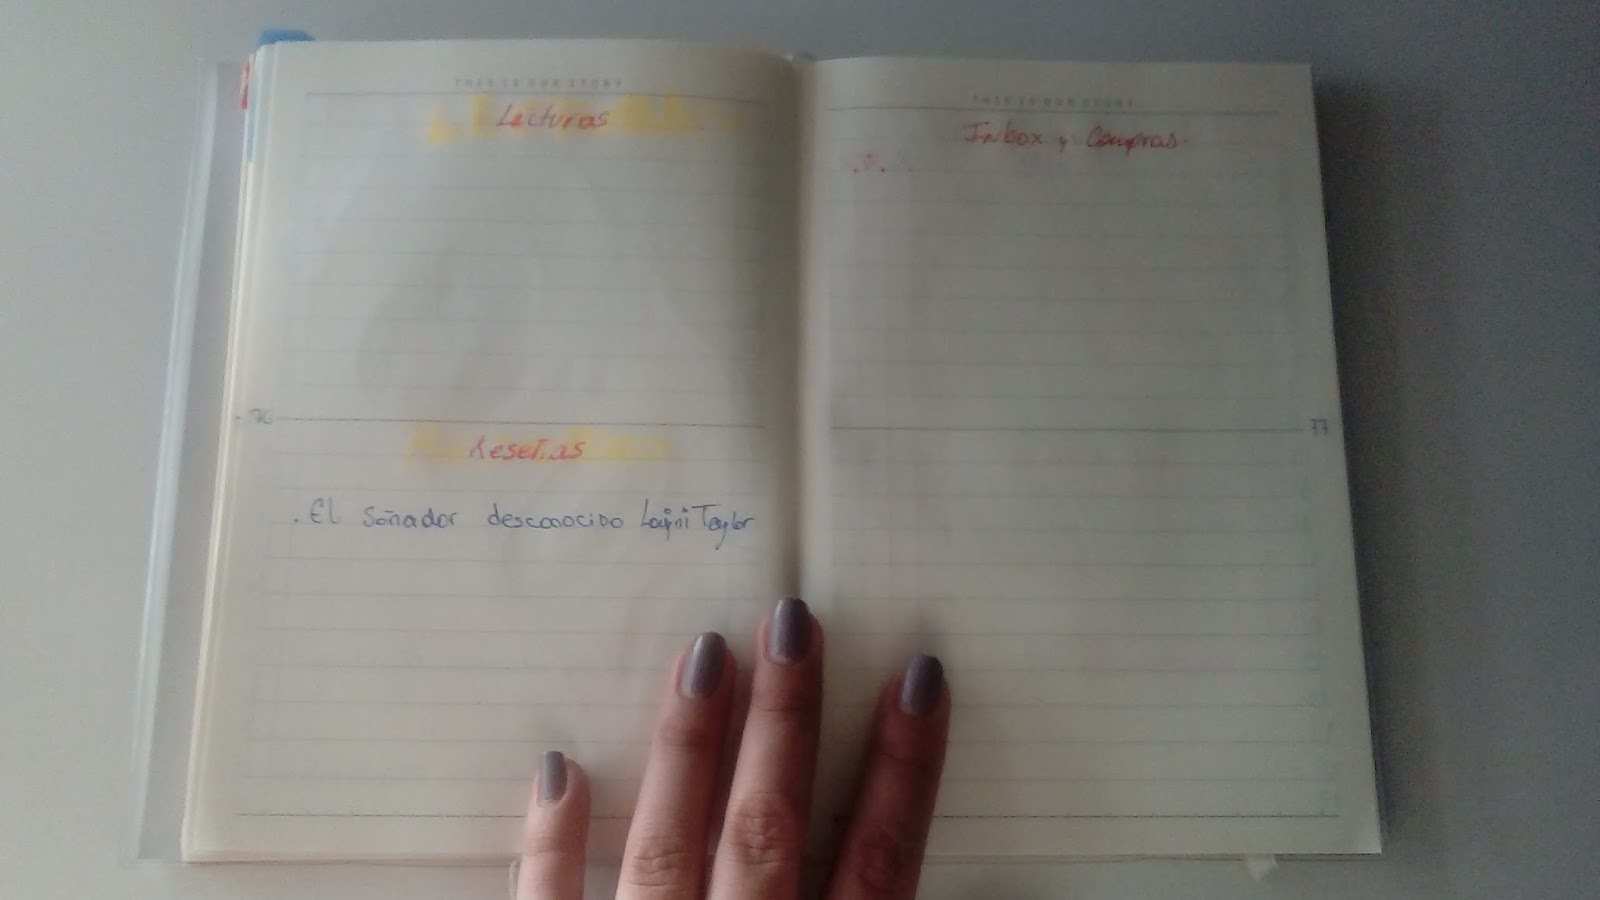 THIS IS OUR STORY
Lecturas
76
Reseñas
. El Soñador desconocido Laini Taylor
THIS IS OUR STORY
Inbox y Compras.
77